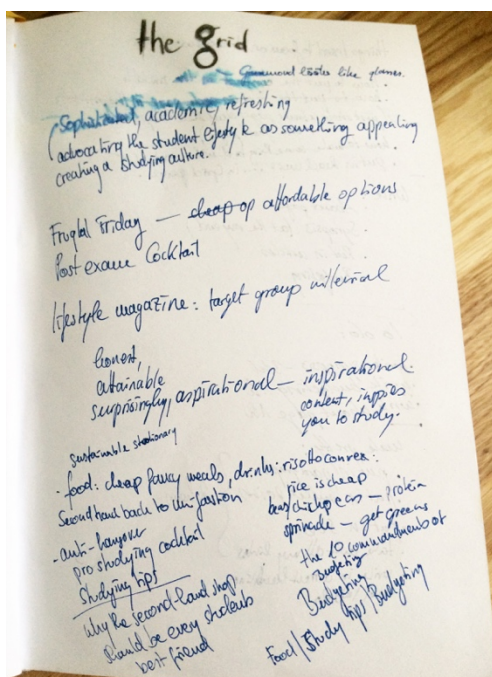 the grid
Garamond looks like glasses.
Sophisticated, academic, refreshing
advocating the student lifestyle as something appealing
creating a studying culture.
Frugal Friday — cheap op affordable options
Post exam Cocktail
lifestyle magazine: target group millenial
honest,
attainable
surprisingly, aspirational — inspirational
content, inspires
you to study.
sustainable stationary
- food: cheap fancy meals, drinks: risotto
rice is cheap
beans/chickpeas — protein
— get greens
Second hand back to uni-fashion
- anti-hangover
pro studying cocktail
Studying tips
why the second-hand shop
should be every students
best friend
the 10 commandments of
Budgeting
Budgeting
Food/Study tips/Budgeting